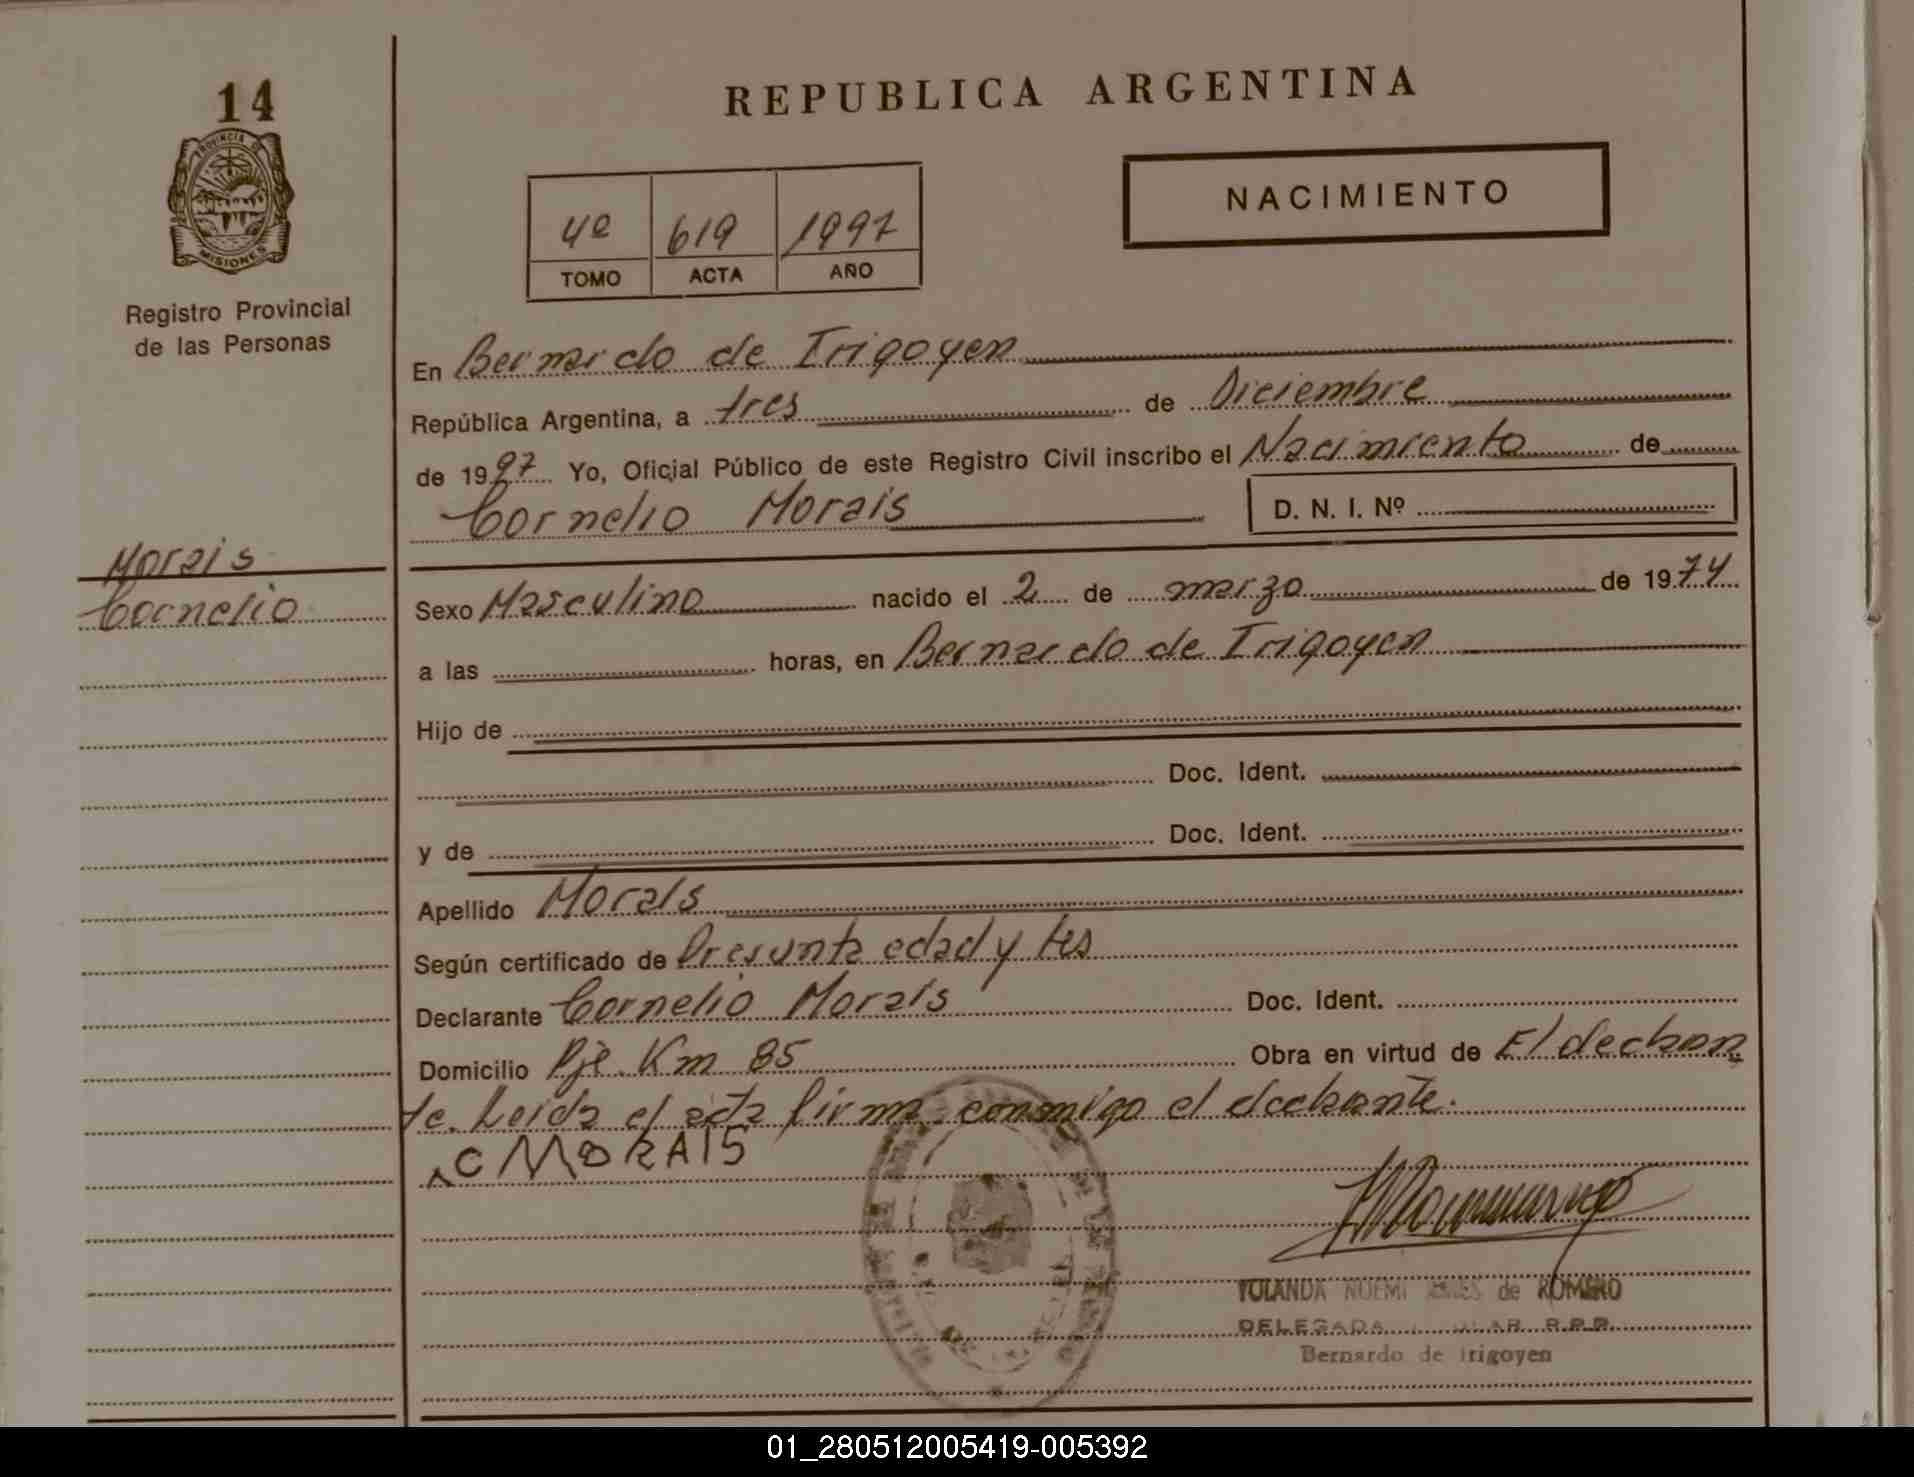 14
PROVINCIA DE
MISIONES
Registro Provincial
de las Personas
Morais
Cornelio
REPUBLICA ARGENTINA
4º 619 1997
TOMO ACTA AÑO
NACIMIENTO
En Bernardo de Irigoyen
República Argentina, a tres de Diciembre
de 1997 Yo, Oficial Público de este Registro Civil inscribo el Nacimiento de
Cornelio Morais D. N. I. Nº
Sexo Masculino nacido el 2 de marzo de 1974
a las horas, en Bernardo de Irigoyen
Hijo de
Doc. Ident.
y de Doc. Ident.
Apellido Morais
Según certificado de Presunta edad y tes
Declarante Cornelio Morais Doc. Ident.
Domicilio Pje. Km 85 Obra en virtud de El declaran
te. Leida el acta firma conmigo el declarante.
C MORAIS
YOLANDA NOEMI de ROMERO
DELEGADA R.P.P.
Bernardo de Irigoyen
01_280512005419-005392